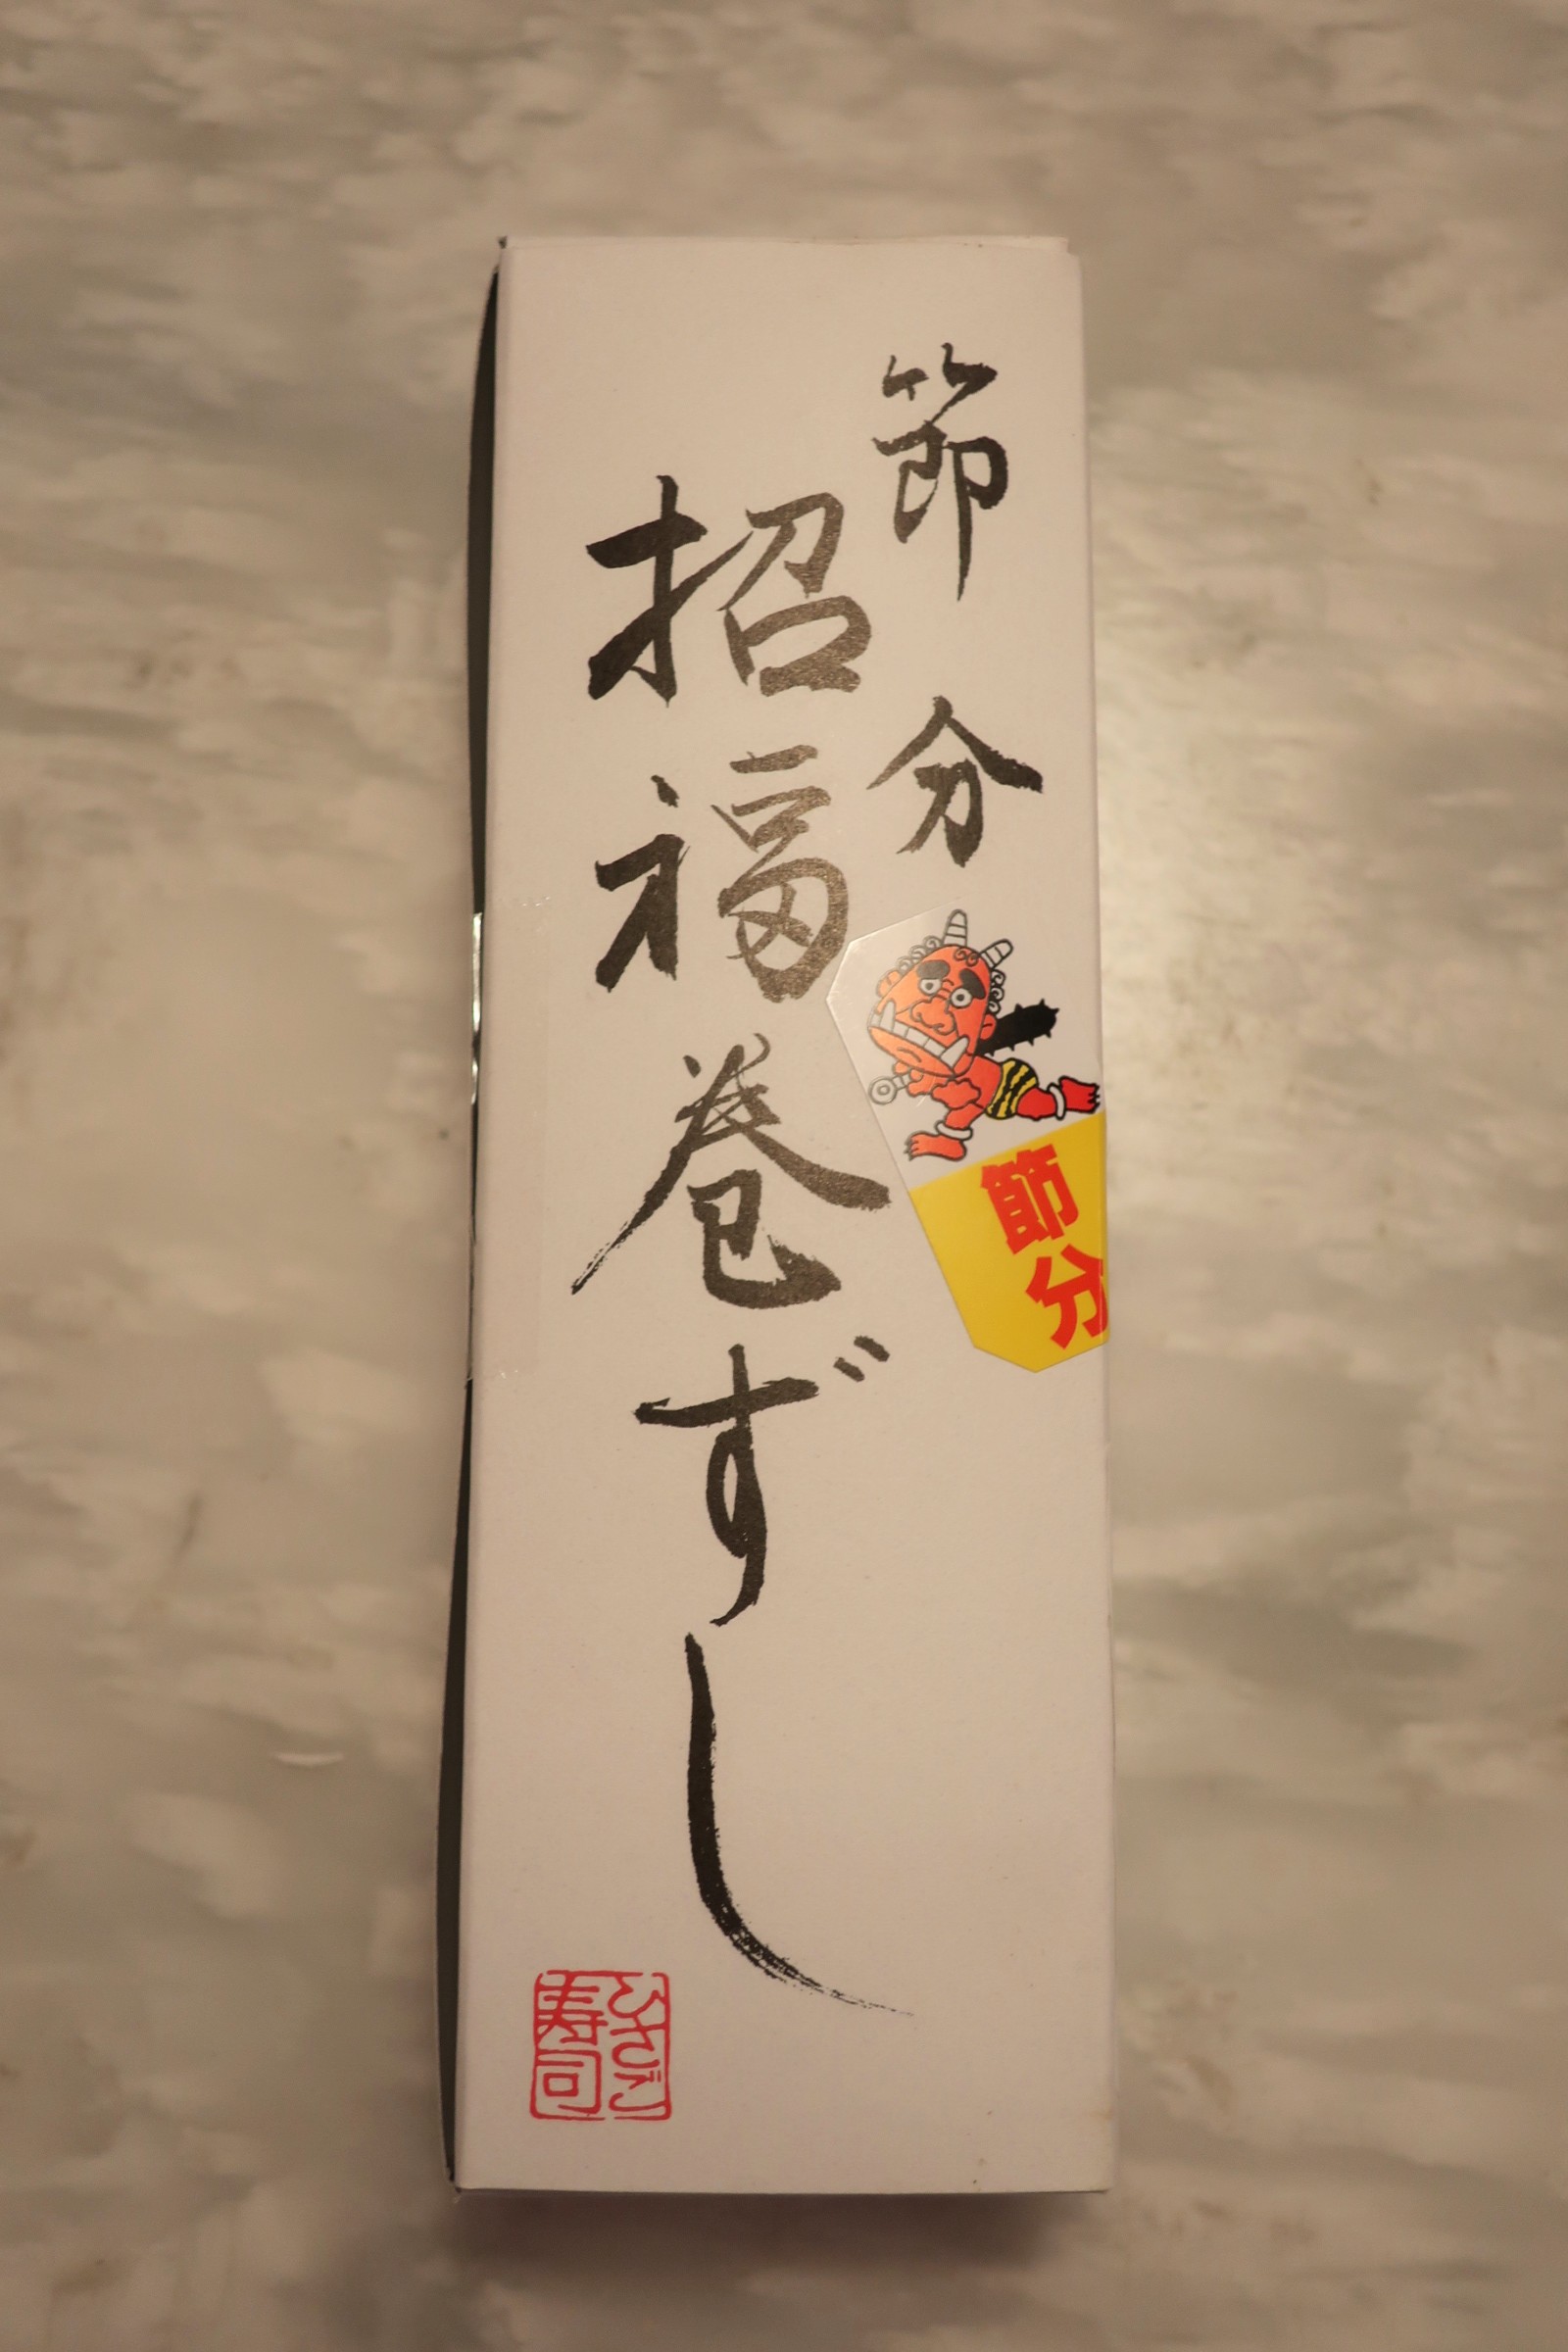 節分
招福巻ずし
節分
ひさご
寿司